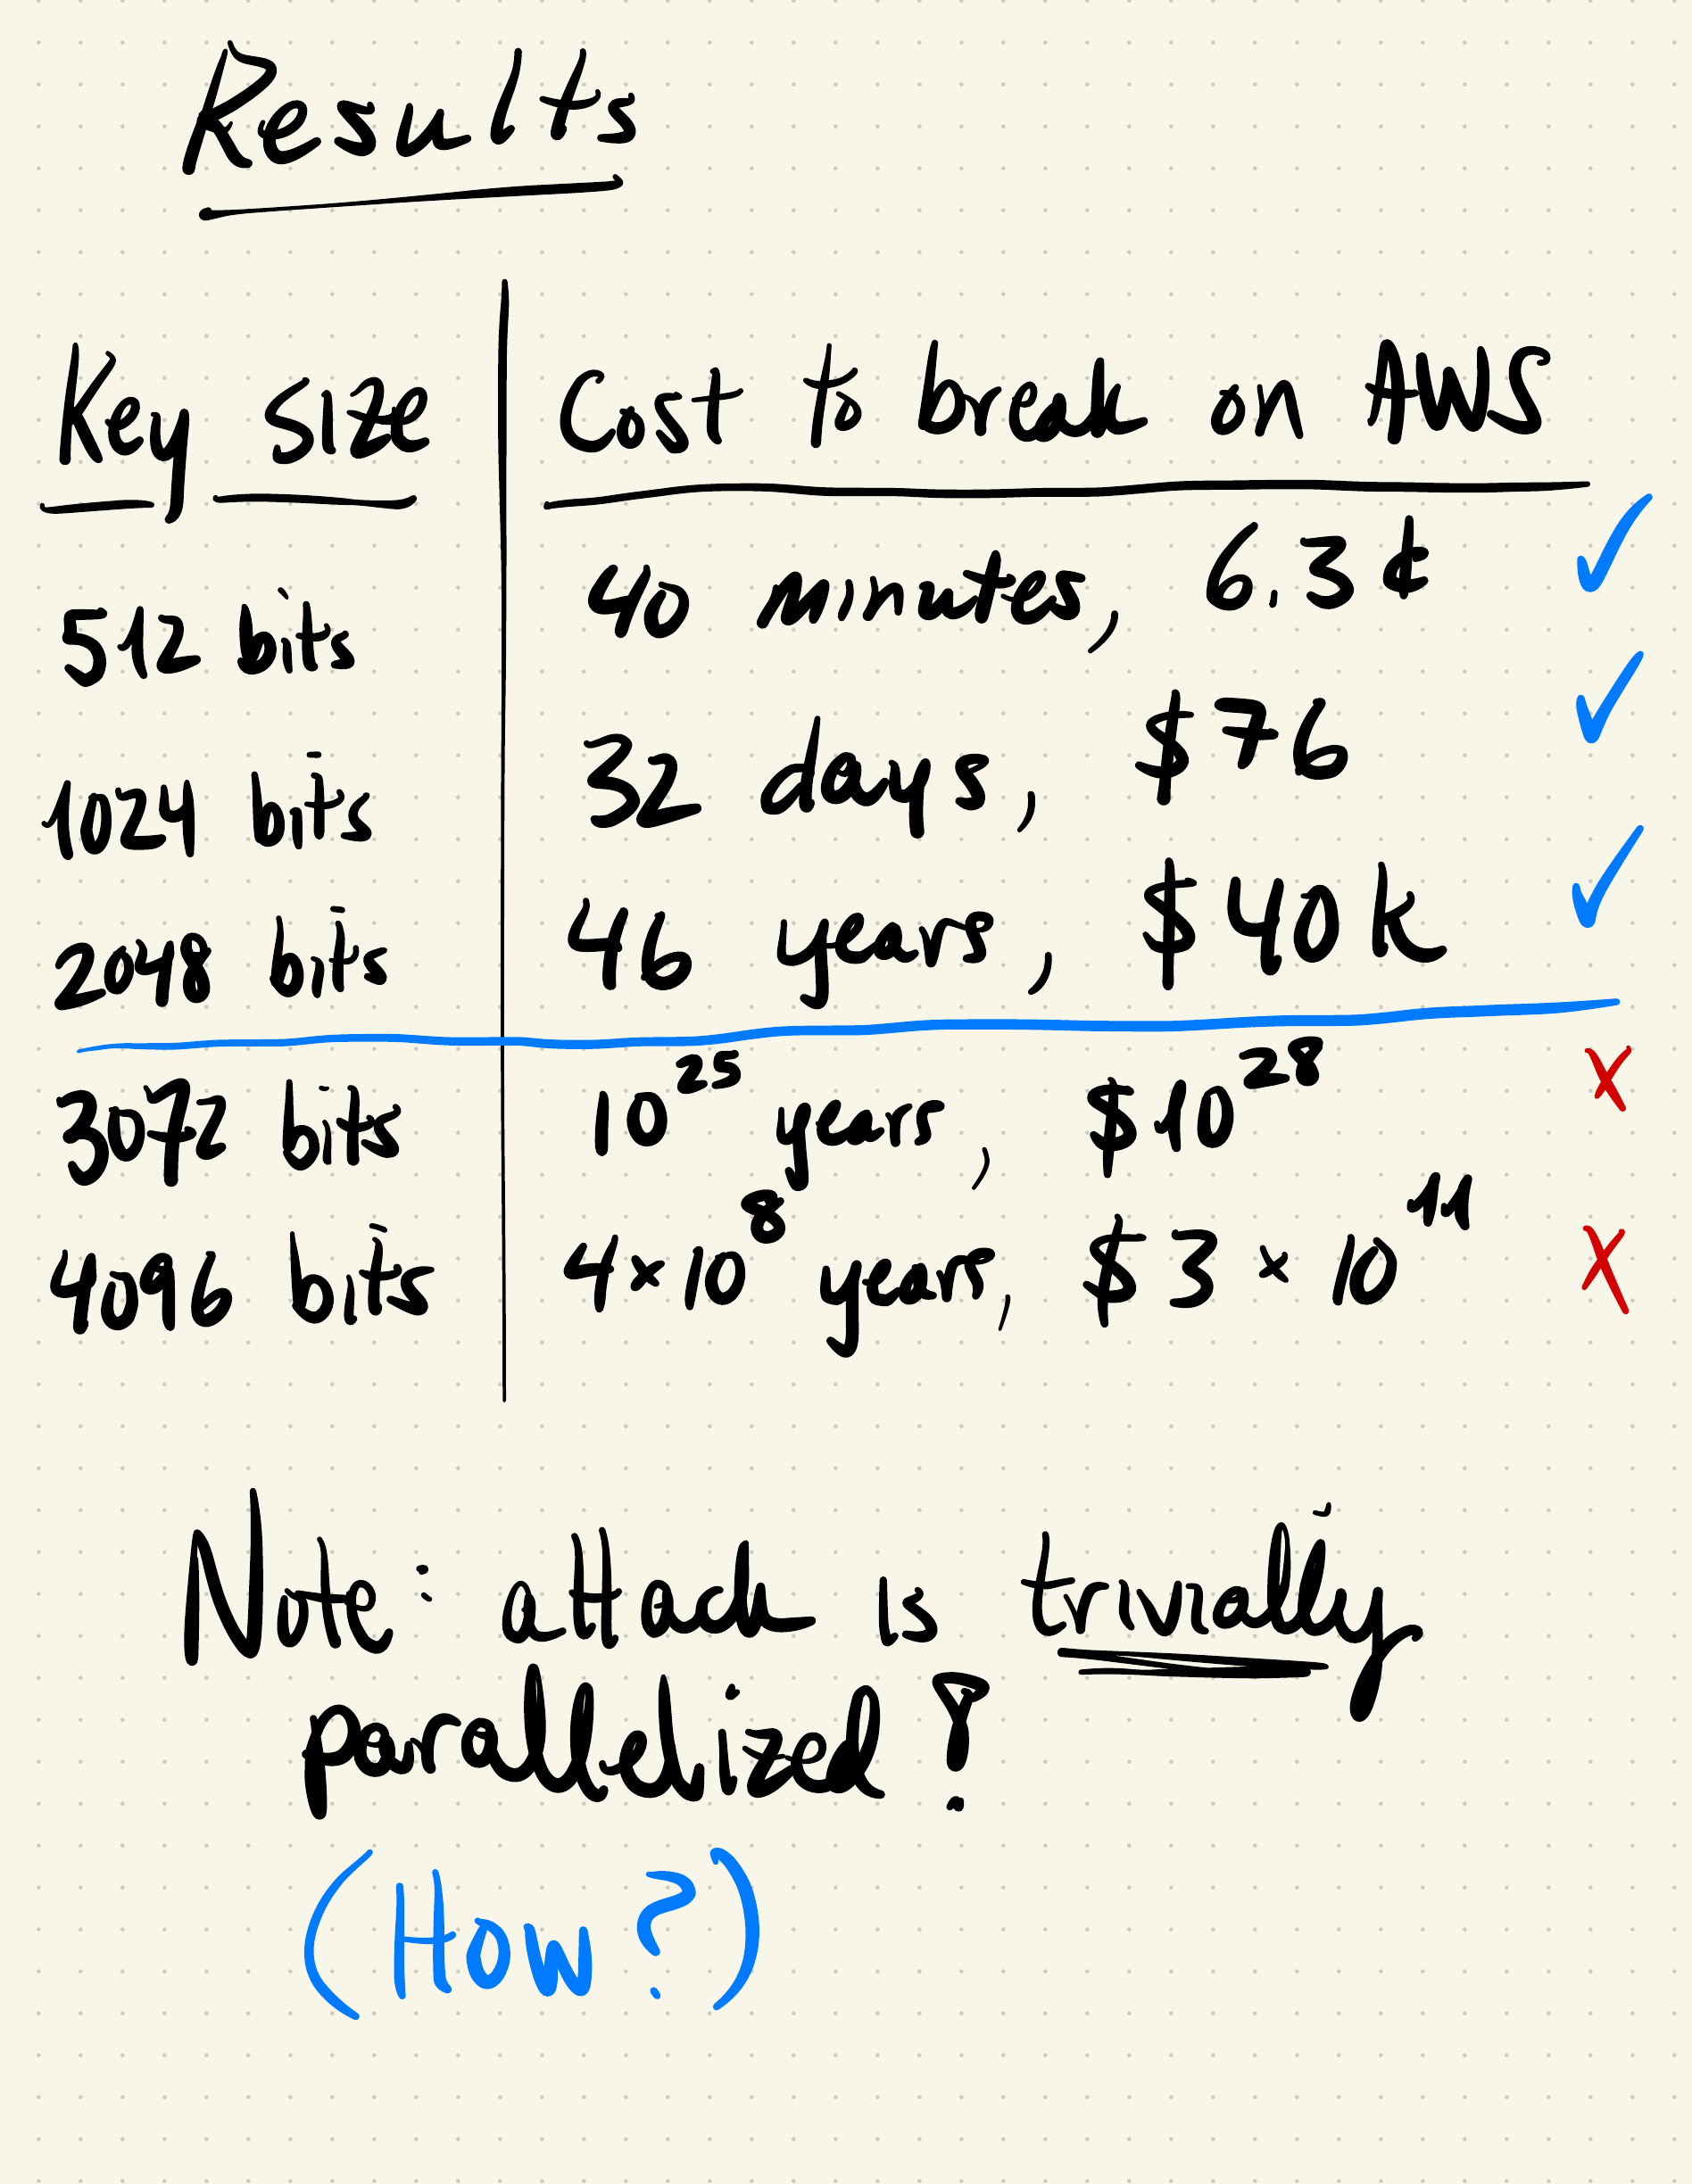 Results
Key size Cost to break on AWS
512 bits 40 minutes, 6.3¢ ✓
1024 bits 32 days, $76 ✓
2048 bits 46 years, $40k ✓
3072 bits 10²⁵ years, $10²⁸ X
4096 bits 4×10⁸ years, $3 × 10¹¹ X
Note: attack is trivially
parallelized!
(How?)